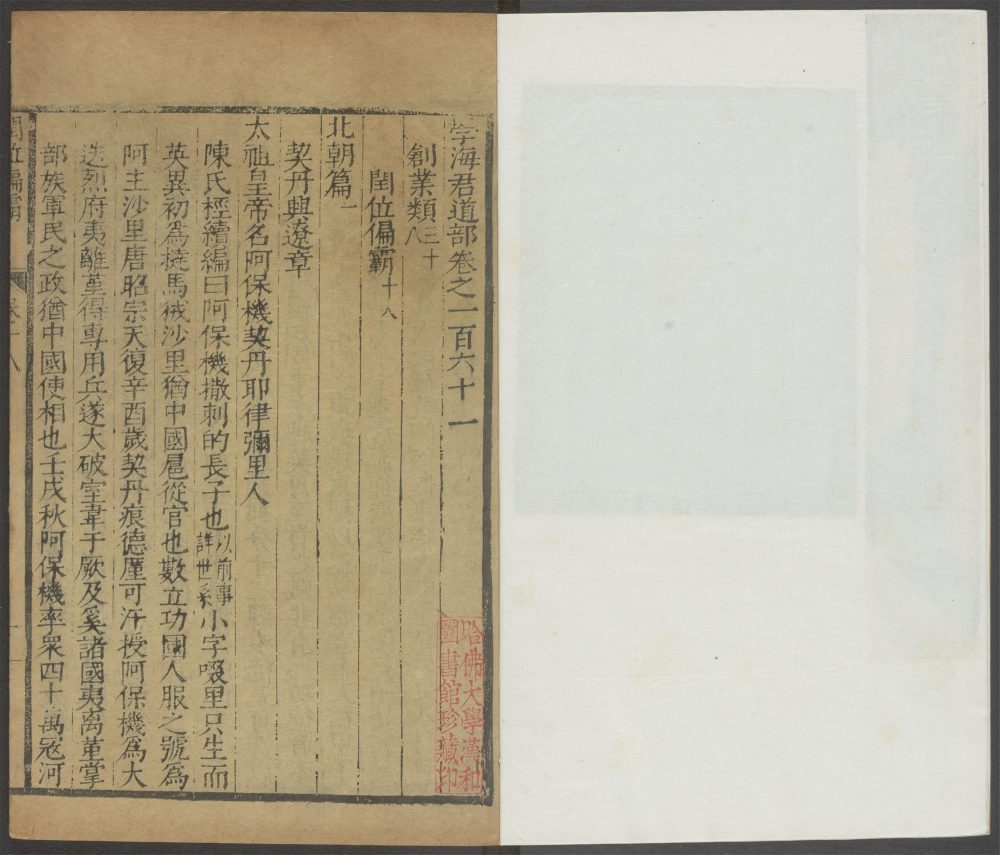 學海君道部卷之一百六十一
創業類三十八
閏位偏霸十八
北朝篇一
契丹興遼章
太祖皇帝名阿保機契丹耶律彌里人
陳氏桱續編曰阿保機撒剌的長子也以前事詳世系小字啜里只生而
英異初為撻馬狨沙里猶中國扈從官也數立功國人服之號為
阿主沙里唐昭宗天復辛酉歲契丹痕德厘可汗授阿保機為大
迭烈府夷離堇得專用兵遂大破室韋于厥及奚諸國夷离菫掌
部族軍民之政猶中國使相也壬戌秋阿保機率眾四十萬寇河
閏位偏霸
卷十八
哈佛大學漢和
圖書館珍藏印